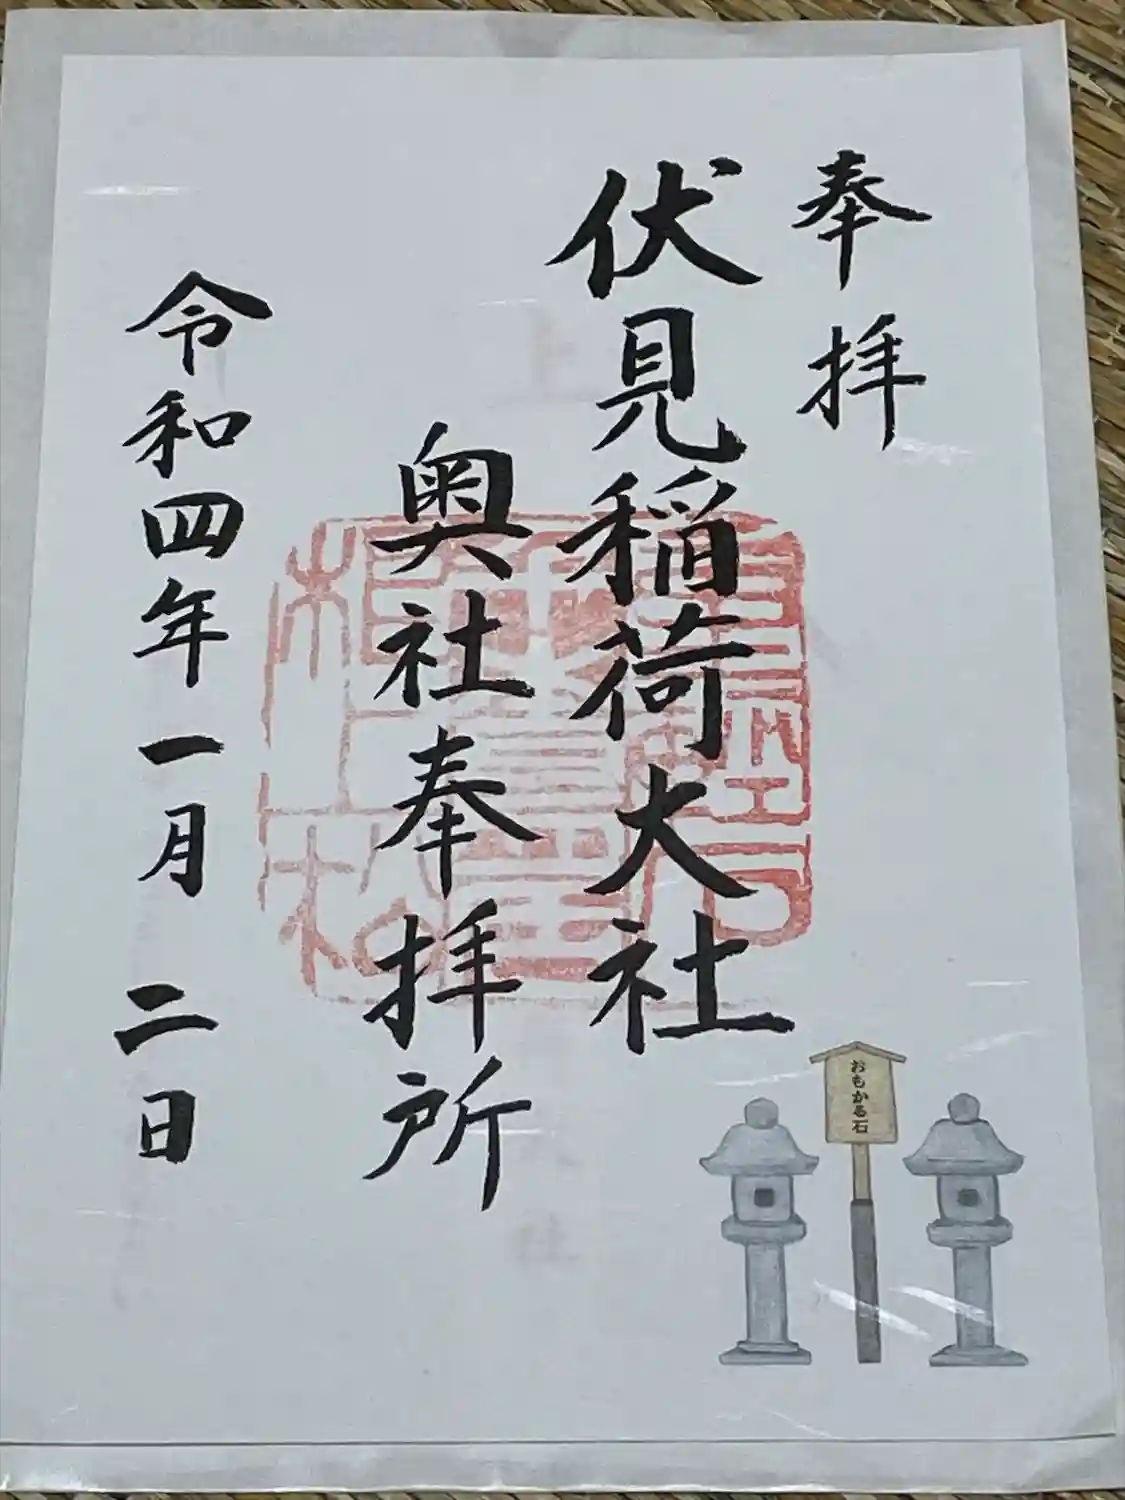 奉拝
伏見稲荷大社
奥社奉拝所
令和四年一月二日
おもかる石